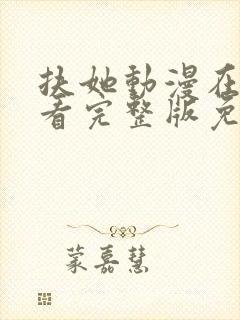 扶她動漫在
看完整版免
蒙嘉慧